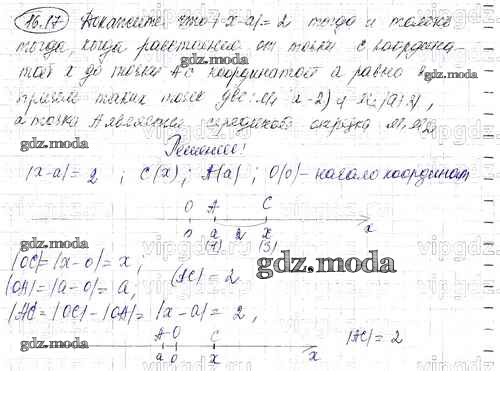 16.17 Докажите, что |x-a|=2 тогда и только
тогда, когда расстояние от точки с координа-
той x до точки A с координатой a равно
причём таких точек две: M₁
а точка A является серединой отрезка M₁M₂
Решение!
|x-a|=2 ; C(x); A(a); O(o)-начало координат
O A C
o a 2 x x
(1) (3)
|OC|=|x-0|=x;
|OA|=|a-0|=a, |AC|=2
|AC|=|OC|-|OA|=|x-a|=2,
A O C |AC|=2
a o x x
gdz.moda
gdz.moda
gdz.moda
gdz.moda
gdz.moda
gdz.moda